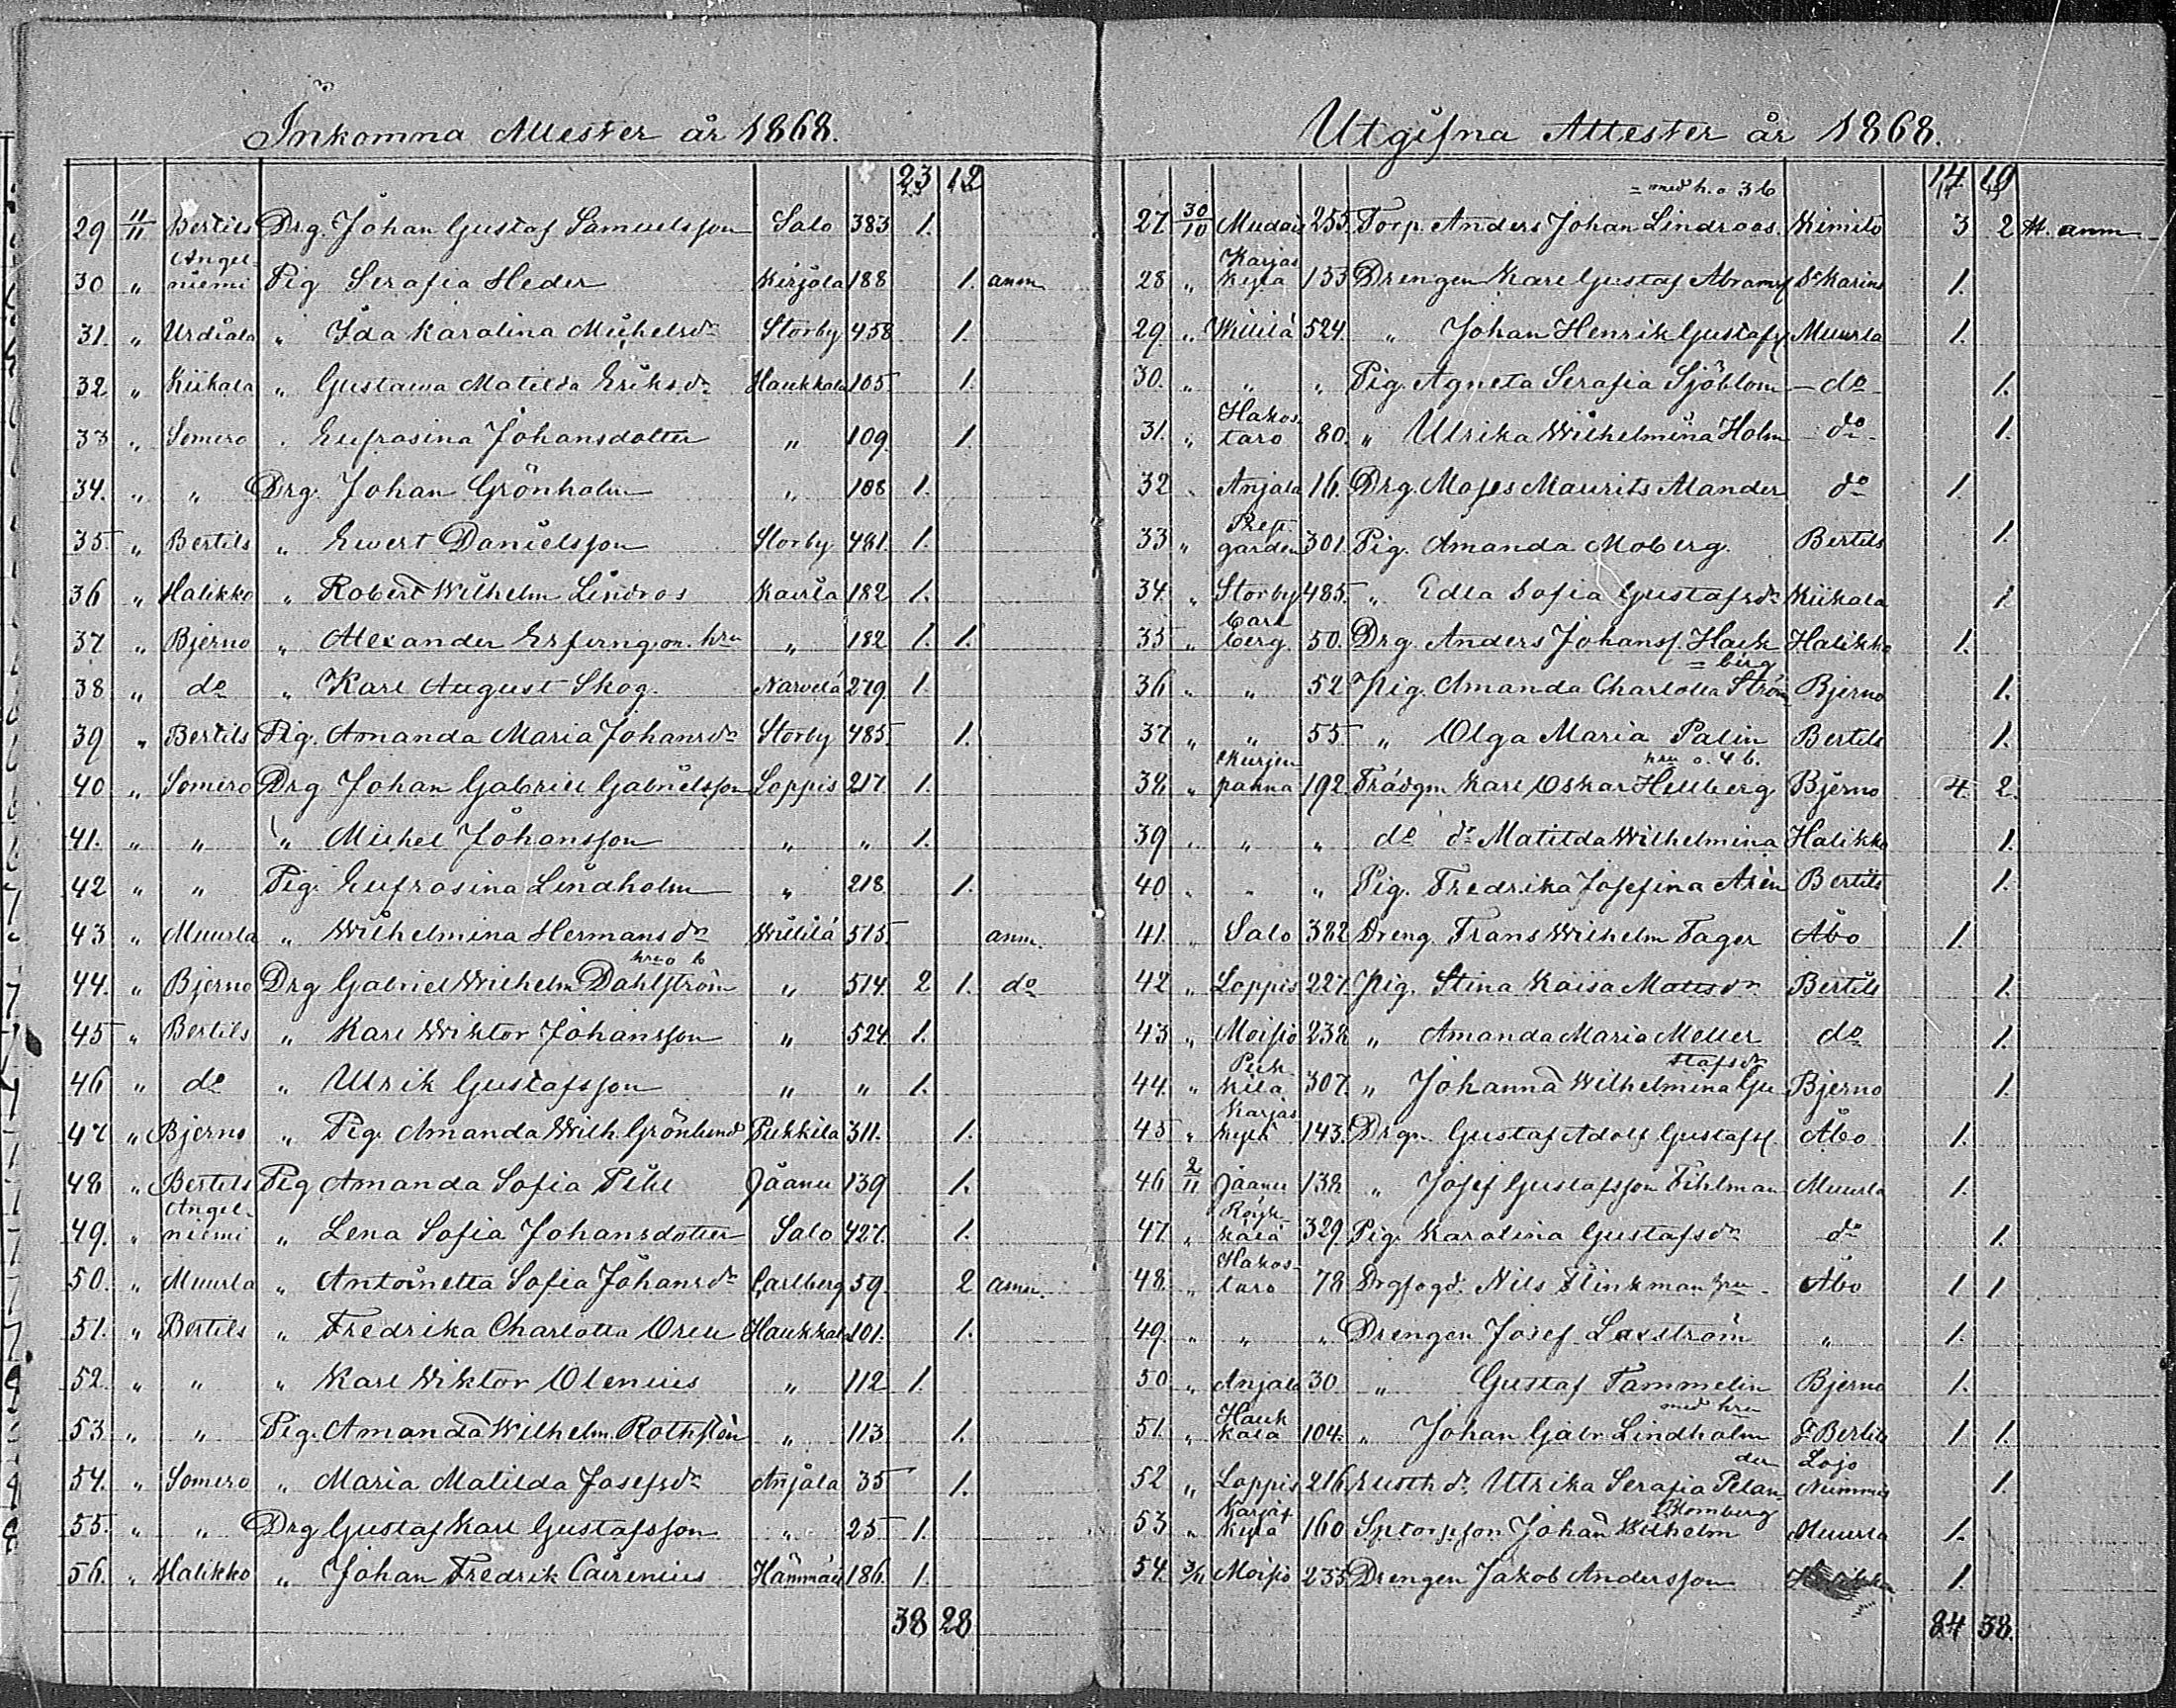 Inkomna Attester år 1868.
23 12
29 11/11 Bertils Drg. Johan Gustaf Samuelsson Salo 383 1.
30 „ Angelniemi Pig Serafia Heder Kirjola 188 1. anm
31. „ Urdiala „ Ida Karolina Michelsdr Storby 458 1.
32 „ Kiikala „ Gustawa Matilda Eriksdr Haukkala 105. 1.
33 „ Somero „ Eufrosina Johansdotter „ 109. 1.
34. „ „ Drg. Johan Grönholm „ 108 1.
35 „ Bertils „ Ewert Danielsson Storby 481. 1.
36 „ Halikko „ Robert Wilhelm Lindros Kaivla 182 1.
37 „ Bjerno „ Alexander Erfving m. hru „ 182 1. 1.
38 „ do „ Karl August Skog. Narvila 279. 1.
39 „ Bertils Pig. Amanda Maria Johansdr Storby 485. 1.
40 „ Somero Drg Johan Gabriel Gabrielsson Loppis 217. 1.
41. „ „ „ Michel Johansson „ „ 1.
42 „ „ Pig. Eufrosina Lindholm „ 218 1.
43 „ Muurla „ Wilhelmina Hermansdr Wiililä 515. anm.
hru o b
44. „ Bjerno Drg Gabriel Wilhelm Dahlström „ 514. 2 1. do
45 „ Bertils „ Karl Wiktor Johansson „ 524. 1.
46 „ do „ Ulrik Gustafsson „ „ 1.
47 „ Bjerno „ Pig. Amanda Wilh. Grönlund Pukkila 311. 1.
48 „ Bertils Pig Amanda Sofia Pihl Jäänu 139 1.
49. „ Angelniemi „ Lena Sofia Johansdotter Salo 427. 1.
50. „ Muurla „ Antoinetta Sofia Johansdr Carlberg 59. 2 anm.
51. „ Bertils „ Fredrika Charlotta Oren Haukkala 101. 1.
52. „ „ „ Karl Wiktor Olenius „ 112 1.
53 „ „ Pig. Amanda Wilhelm. Rothsten „ 113. 1.
54. „ Somero „ Maria Matilda Josefsdr Anjala 35 1.
55. „ „ Drg Gustaf Karl Gustafsson „ 25 1.
56. „ Halikko „ Johan Fredrik Cairenius Hämmäis 186. 1.
38 28
Utgifna Attester år 1868.
14 19
= med h. o 3 b
27 30/10 Mudais 255. Torp. Anders Johan Lindroos. Kimito 3 2 anm
28 „ Karjaskylä 133 Drengen Karl Gustaf Abramss St Karins 1.
29 „ Wiililä 524. „ Johan Henrik Gustafss Muurla 1.
30. „ „ „ Pig. Agneta Serafia Sjöblom – do – 1.
31. „ Hakostaro 80. „ Ulrika Wilhelmina Holm – do – 1.
32 „ Anjala 16. Drg. Moses Maurits Mander do 1.
33 „ Prestgården 301. Pig. Amanda Moberg. Bertils 1.
34. „ Storby 485. „ Edla Sofia Gustafsdr Kiikala 1.
35 „ Carlberg. 50. Drg. Anders Johanss. Hack Halikko 1.
= berg
36 „ „ 52 Pig. Amanda Charlotta Ström Bjerno 1.
37 „ „ 55. „ Olga Maria Palin Bertils 1.
hru o. 4 b.
38 „ Kurjenpahna 192. Trädgm Karl Oskar Hellberg Bjerno 4. 2.
39 „ „ „ do dr Matilda Wilhelmina Halikko 1.
40 „ „ „ Pig. Fredrika Josefina Arén Bertils 1.
41. „ Salo 382 Dreng. Frans Wilhelm Fager Åbo 1.
42 „ Loppis 227. Pig. Stina Kaisa Mattsdr Bertils 1.
43 „ Moisio 238 „ Amanda Maria Meller do 1.
stafsdr
44. „ Pukkila 307. „ Johanna Wilhelmina Gu Bjerno 1.
45 „ Karjaskylä 143. Drgn. Gustaf Adolf Gustafss Åbo 1.
46 2/11 Jäänu 138 „ Josef Gustafsson Fihlman Muurla 1.
47 „ 329. Pig. Karolina Gustafsdr do 1.
48. „ Hakostaro 78 Drgfogd. Nils Flinkman hru Åbo 1 1
49. „ „ „ Drengen Josef Laxström „ 1.
50 „ Anjala 30 „ Gustaf Tammelin Bjerno 1.
med hru
51. „ Haukkala 104. „ Johan Gabr. Lindholm F Bertils 1 1.
der Lojo
52 „ Loppis 216. dr. Ulrika Serafia Pelan Nummis 1.
Blomberg
53 „ Karjaskylä 160 Johan Wilhelm Muurla 1.
54 3/11 Moisio 235 Drengen Jakob Andersson 1.
24 38.